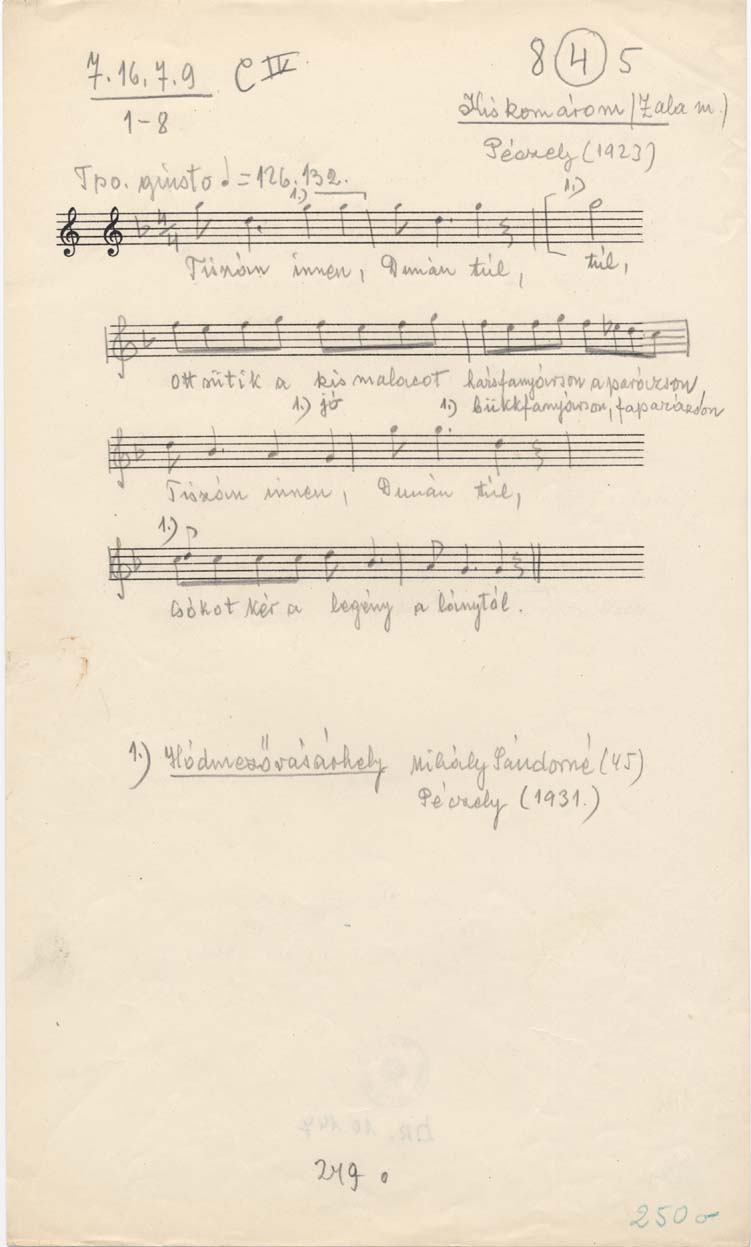 7.16.7.9 C IV
1-8
8 4 5
Kiskomárom (Zala m.)
Péczely (1923)
Tpo. giusto ♩=126.132.
1.) 1.)
4/4
Tiszán innen, Dunán túl, túl,
Ott sütik a kis malacot hársfanyárson a parázson,
1.) jó 1.) bükkfanyárson, faparázson
Tiszán innen, Dunán túl,
1.)
Csókot kér a legény a lánytól.
1.) Hódmezővásárhely Mihály Sándorné (45)
Péczely (1931.)
249 o
250 o